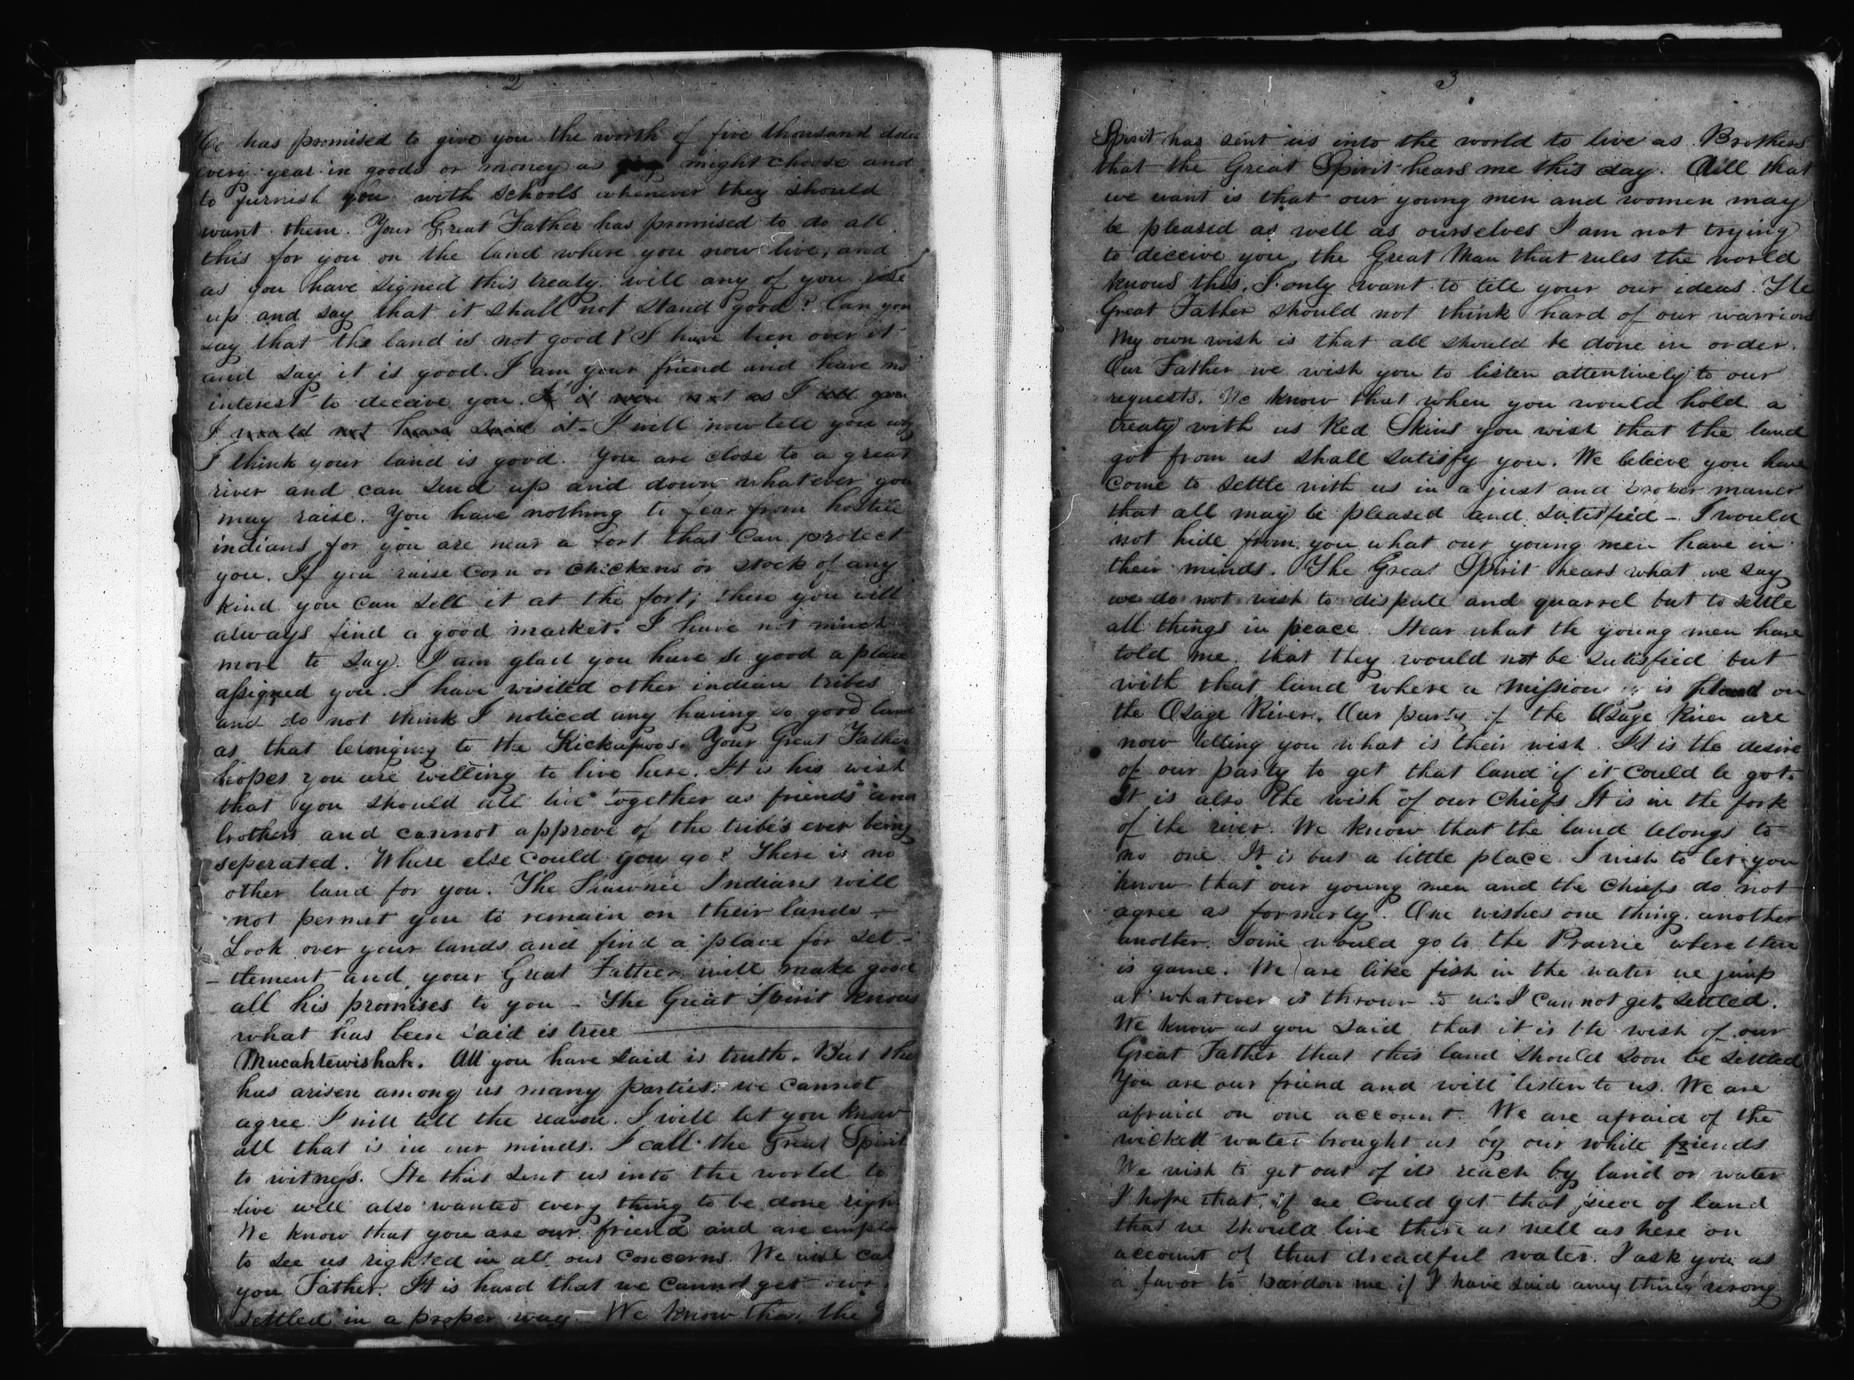 2
He has promised to give you the worth of five thousand dolla
every year in goods or money as might choose and
to furnish you with schools whenever they should
want them. Your Great Father has promised to do all
this for you on the land where you now live, and
as you have signed this treaty will any of you rise
up and say that it shall not stand good? Can you
say that the land is not good? I have been over it
and say it is good. I am your friend and have no
interest to deceive you. If it was not as I
I would not have said it. I will now tell you why
I think your land is good. You are close to a great
river and can send up and down whatever you
may raise. You have nothing to fear from hostile
indians for you are near a fort that can protect
you. If you raise corn or chickens or stock of any
kind you can sell it at the fort; there you will
always find a good market. I have not much
more to say. I am glad you have so good a place
assigned you. I have visited other indian tribes
and do not think I noticed any having so good land
as that belonging to the Kickapoos. Your Great Father
hopes you are willing to live here. It is his wish
that you should all live together as friends and
brothers and cannot approve of the tribes ever being
seperated. Where else could you go? There is no
other land for you. The Shawnee Indians will
not permit you to remain on their lands -
Look over your lands and find a place for set-
-tlement and your Great Father will make good
all his promises to you - The Great Spirit knows
what has been said is true
Mucahtewishah. All you have said is truth. But the
has arisen among us many parties. we cannot
agree I will tell the reason. I will let you know
all that is in our minds. I call the Great Spirit
to witness. He that sent us into the world to
live will also wanted every thing to be done righ
We know that you are our friend and are
to see us righted in all our concerns. We will cal
you Father. It is hard that we cannot get our
settled in a proper way - We know that the
3
Spirit has sent us into the world to live as Brothers
that the Great Spirit hears me this day. All that
we want is that our young men and women may
be pleased as well as ourselves I am not trying
to deceive you, the Great Man that rules the world
knows this, I only want to tell your our ideas. The
Great Father should not think hard of our warriors
My own wish is that all should be done in order.
Our Father we wish you to listen attentively to our
requests. We know that when you would hold a
treaty with us Red Skins you wish that the land
got from us shall satisfy you. We believe you have
come to settle with us in a just and proper maner
that all may be pleased and satisfied - I would
not hide from you what our young men have in
their minds. The Great Spirit hears what we say
we do not wish to dispute and quarrel but to settle
all things in peace. Hear what the young men have
told me. that they would not be satisfied but
with that land where a mission is on
the Osage River. Our party of the Osage River are
now telling you what is their wish. It is the desire
of our party to get that land if it could be got.
It is also the wish of our Chiefs It is in the fork
of the river. We know that the land belongs to
no one. It is but a little place. I wish to let you
know that our young men and the chiefs do not
agree as formerly. One wishes one thing another
another. Some would go to the Prairie where there
is game. We are like fish in the water we jump
at whatever is thrown to us. I cannot get settled.
We know as you said that it is the wish of our
Great Father that this land should soon be settled
You are our friend and will listen to us. We are
afraid on one account. We are afraid of the
wicked water brought us by our white friends
We wish to get out of its reach by land or water
I hope that if we could get that piece of land
that we should live there as well as here on
account of that dreadful water. I ask you as
a favor to pardon me if I have said any thing wrong